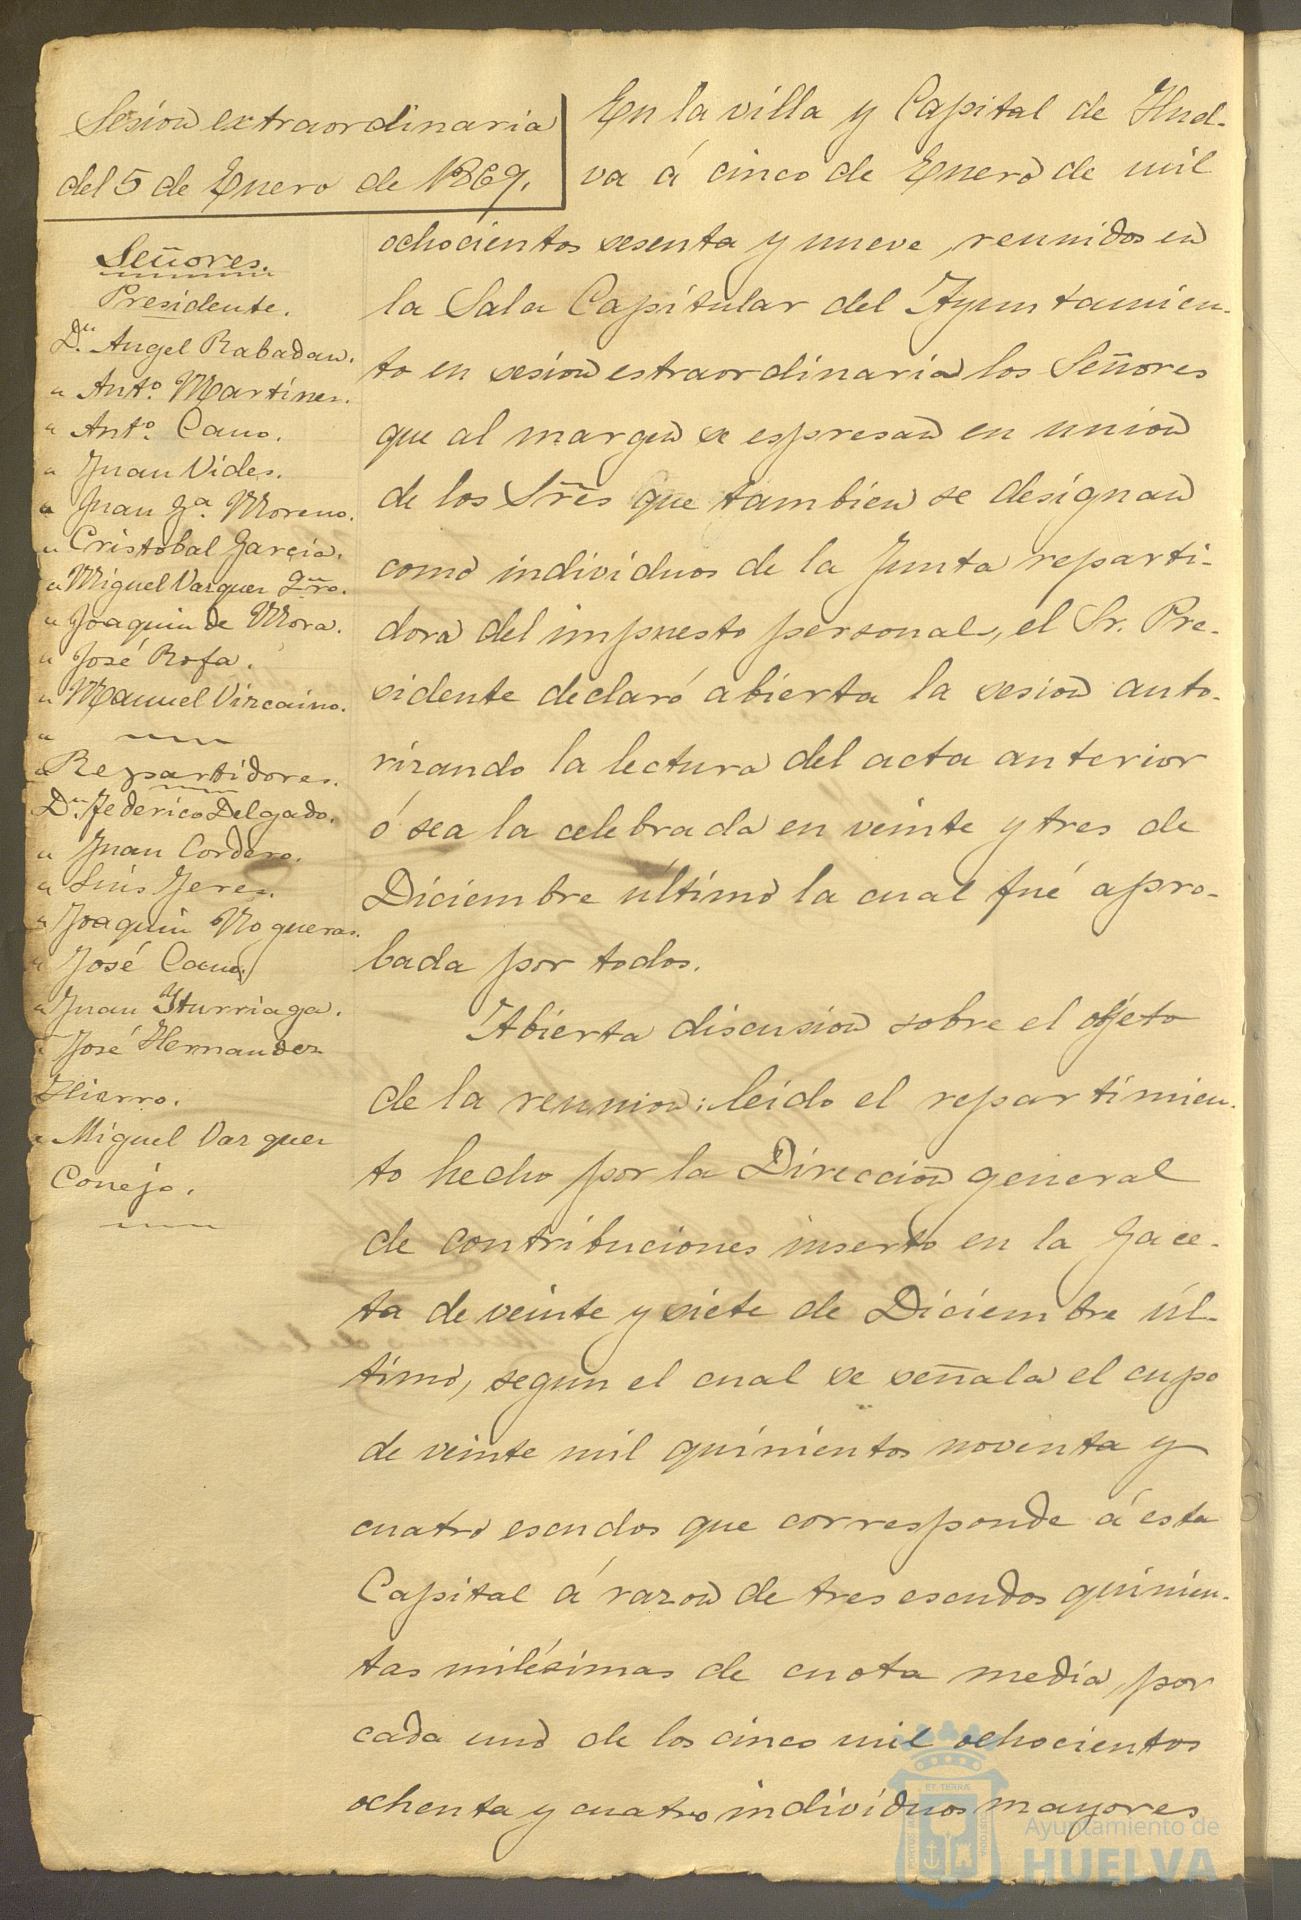 Sesion extraordinaria
del 5 de Enero de 1869.
Señores.
Presidente.
Dn. Angel Rabadan.
" Anto. Martinez.
" Anto. Cano.
" Juan Vides.
" Juan Ga. Moreno.
" Cristobal Garcia.
" Miguel Vazquez
" Joaquin de Mora.
" José Rofa.
" Manuel Vizcaino.
"
Repartidores.
Dn. Federico Delgado.
" Juan Cordero.
" Luis Jerez.
" Joaquin Nogueras.
" José Cano.
" Juan Yturriaga.
" José Hernandez
Hierro.
" Miguel Vazquez
Conejo.
En la villa y Capital de Huel-
va á cinco de Enero de mil
ochocientos sesenta y nueve, reunidos en
la Sala Capitular del Ayuntamien-
to en sesion estraordinaria los Señores
que al margen se espresan en union
de los Sres que tambien se designan
como individuos de la Junta reparti-
dora del impuesto personal, el Sr. Pre-
sidente declaró abierta la sesion auto-
rizando la lectura del acta anterior
ó sea la celebrada en veinte y tres de
Diciembre último la cual fué apro-
bada por todos.
Abierta discusion sobre el objeto
de la reunion; leido el repartimien-
to hecho por la Direccion general
de contribuciones inserto en la Gace-
ta de veinte y siete de Diciembre úl-
timo, segun el cual se señala el cupo
de veinte mil quinientos noventa y
cuatro escudos que corresponde á esta
Capital á razon de tres escudos quinien-
tas milésimas de cuota media, por
cada uno de los cinco mil ochocientos
ochenta y cuatro individuos mayores
Ayuntamiento de
HUELVA